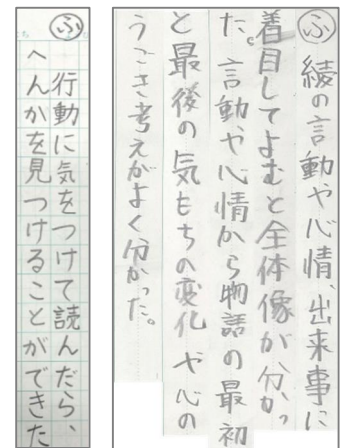 ふ 綾の言動や心情、出来事に
着目してよむと全体像が分かっ
た。言動や心情から物語の最初
と最後の気もちの変化や心の
うごき考えがよく分かった。
ふ 行動に気をつけて読んだら、
へんかを見つけることができた